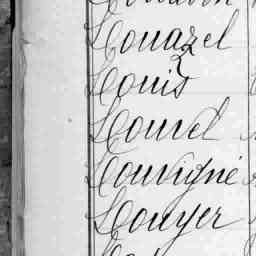 Louazel
Louis
Louvel
Louvigné
Louyer